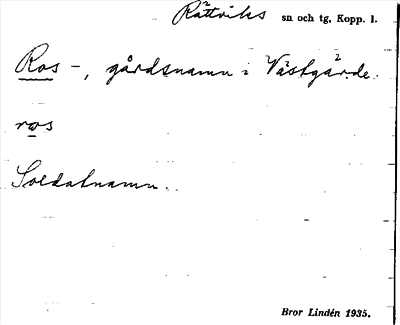 Rättviks sn och tg, Kopp. l.
Ros -, gårdsnamn i Västgärde.
ros
Soldatnamn.
Bror Lindén 1935.